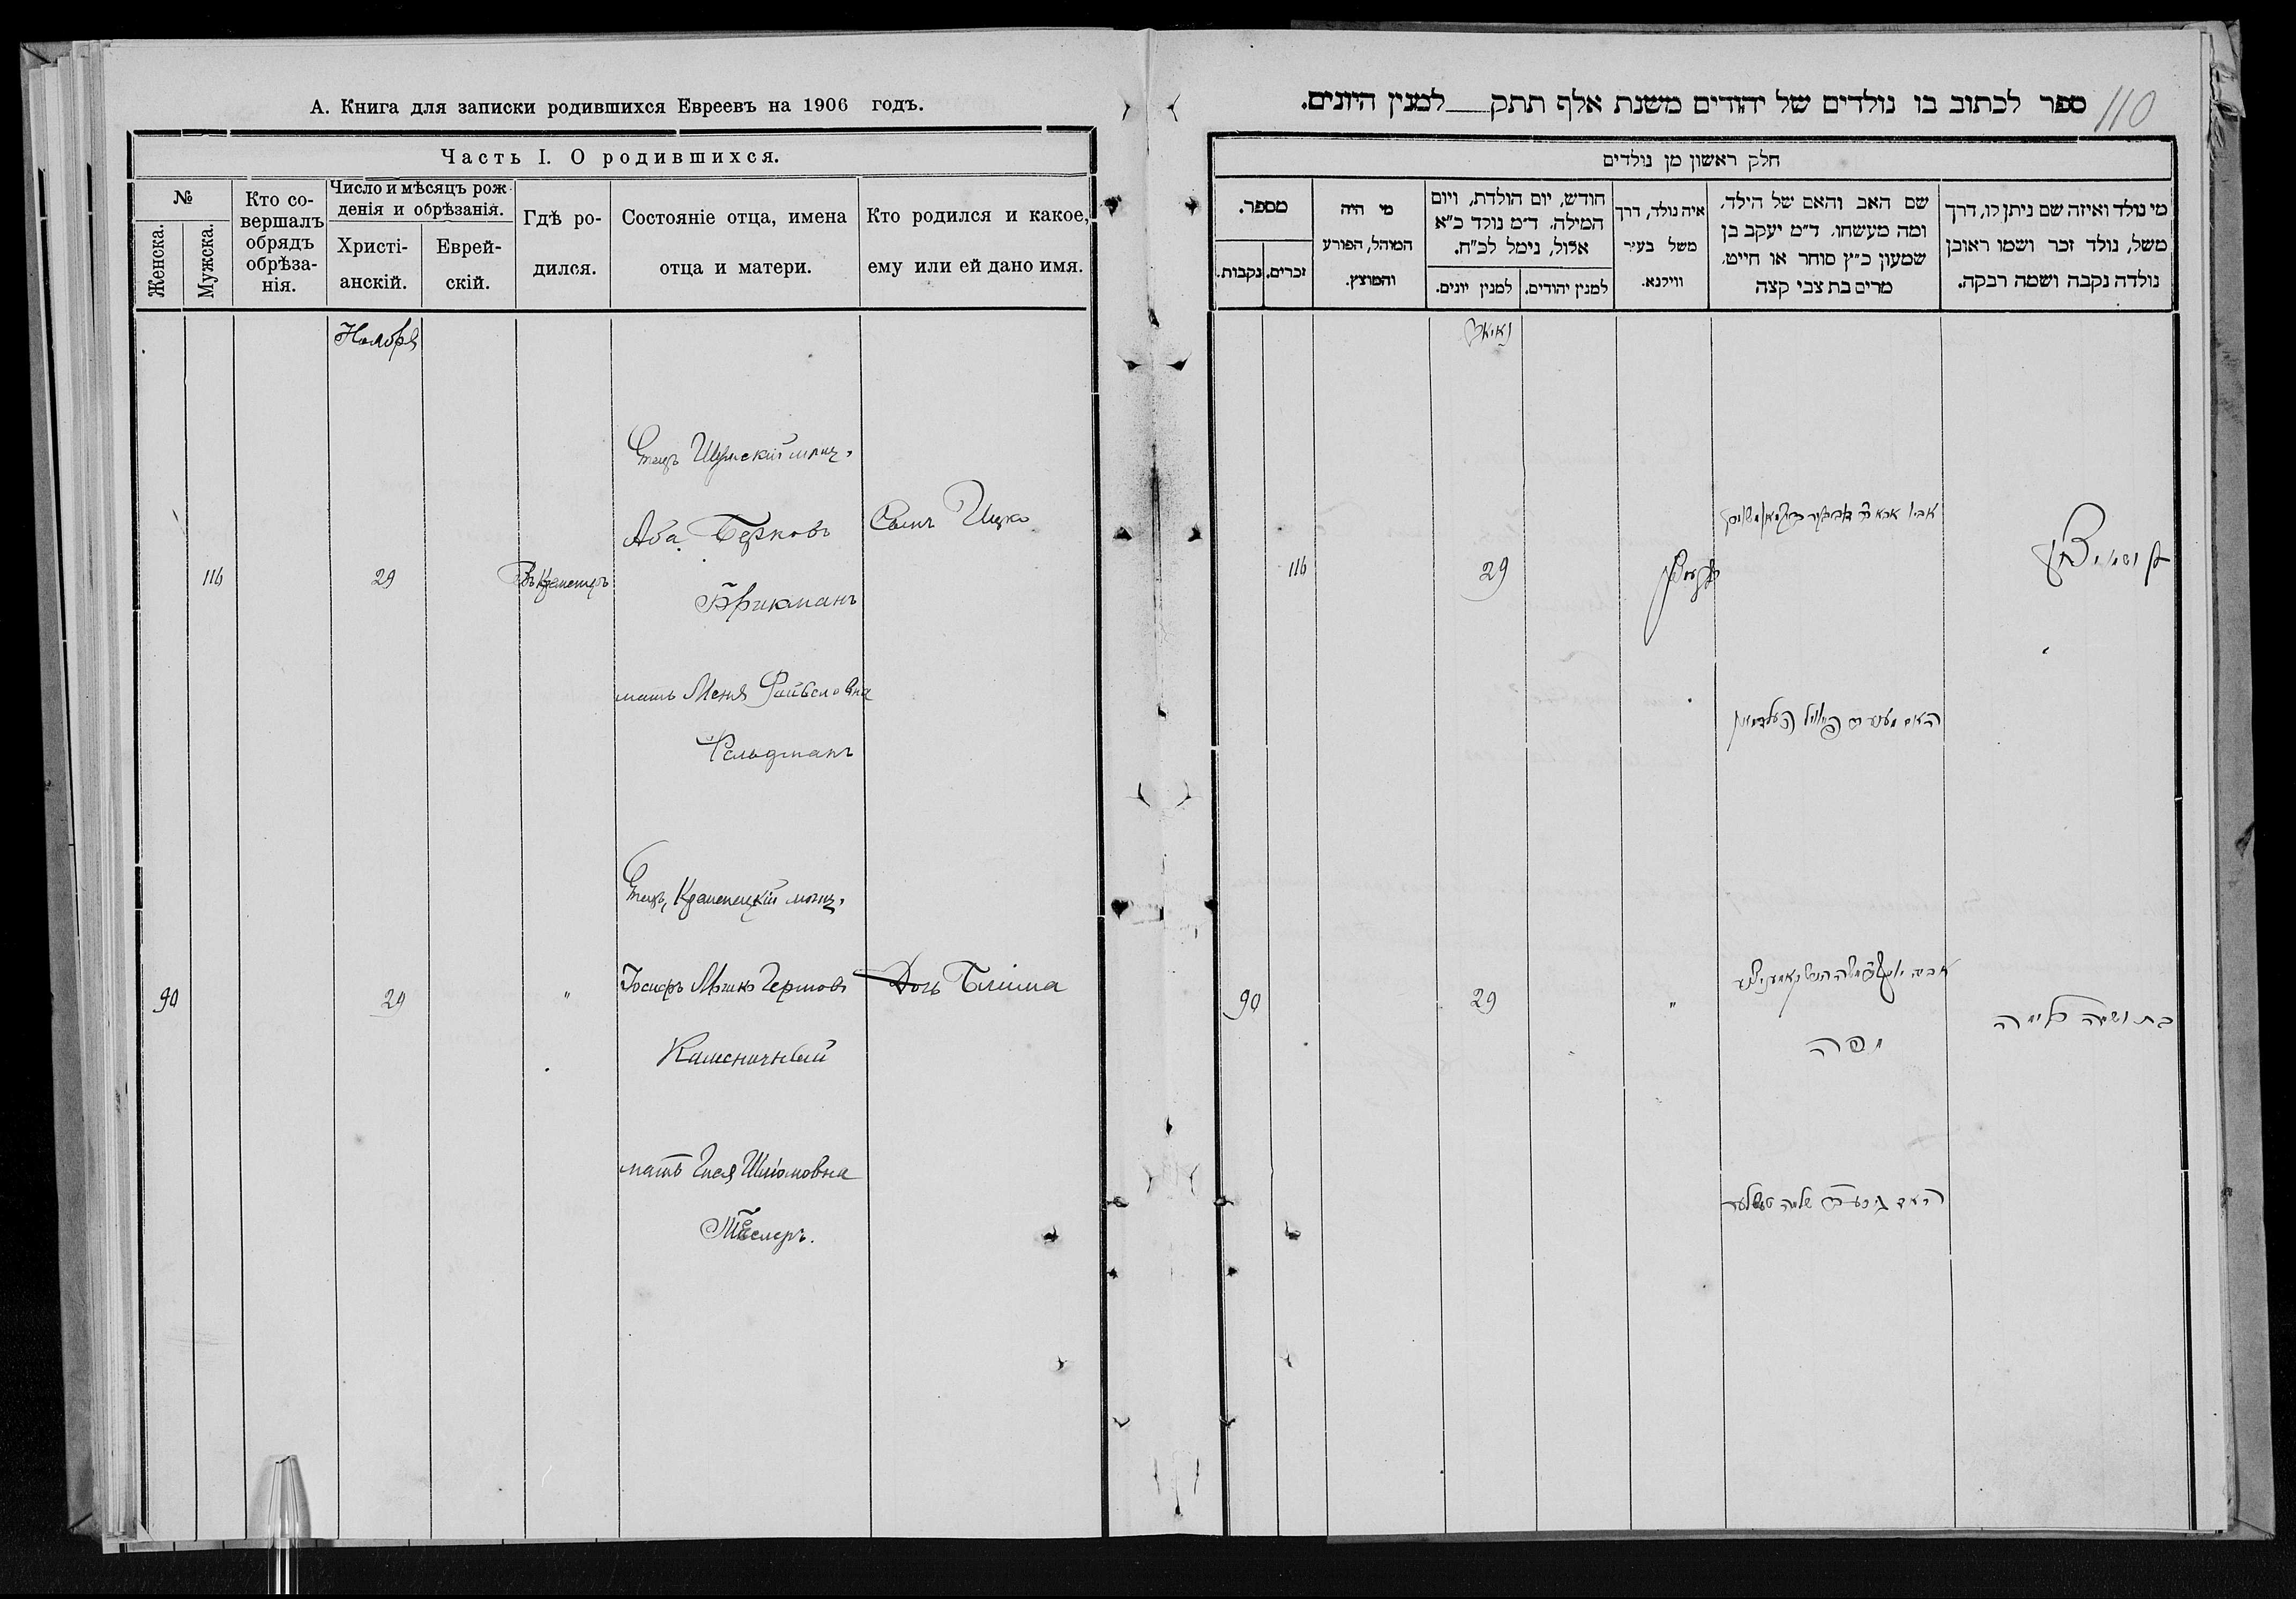 А. Книга для записки родившихся Евреевъ на 1906 годъ.
Часть I. О родившихся.
№
Женска.
Мужска.
Кто со-
вершалъ
обрядъ
обрѣза-
нія.
Число и мѣсяцъ рож-
денія и обрѣзанія.
Христі-
анскій.
Еврей-
скій.
Гдѣ ро-
дился.
Состояніе отца, имена
отца и матери.
Кто родился и какое,
ему или ей дано имя.
Ноября
Отецъ Шумскій мѣщ.
Аба Берковъ
Сынъ Ицко
116
29
Въ Кременцѣ
Брикманъ
мать Меня Файвеловна
Фельдманъ
Отецъ Кременецкій мѣщ.
90
29
"
Іосифъ Мошко Гершовъ
Дочь Блима
Каменичный
мать Гися Шліомовна
Теслеръ.
110
ספר לכתוב בו נולדים של יהודים משנת אלף תתק למנין היונים.
חלק ראשון מן נולדים
מי נולד ואיזה שם ניתן לו, דרך
משל, נולד זכר ושמו ראובן
נולדה נקבה ושמה רבקה.
שם האב והאם של הילד,
ומה מעשהו, ד״מ יעקב בן
שמעון כ״ץ סוחר או חייט,
מרים בת צבי קצה
איה נולד, דרך
משל בעיר
ווילנא.
חודש, יום הולדת, ויום
המילה, ד״מ נולד כ״א
אלול, נימל לכ״ח.
למנין יהודים.
למנין יונים.
מי היה
המוהל, הפורע
והמוצץ.
מספר.
זכרים.
נקבות.
116
29
האם מעניע בת פייוויל פעלדמאן
90
29
"
בת ושמה בלימה
האם גיסע בת שלמה טעסלער